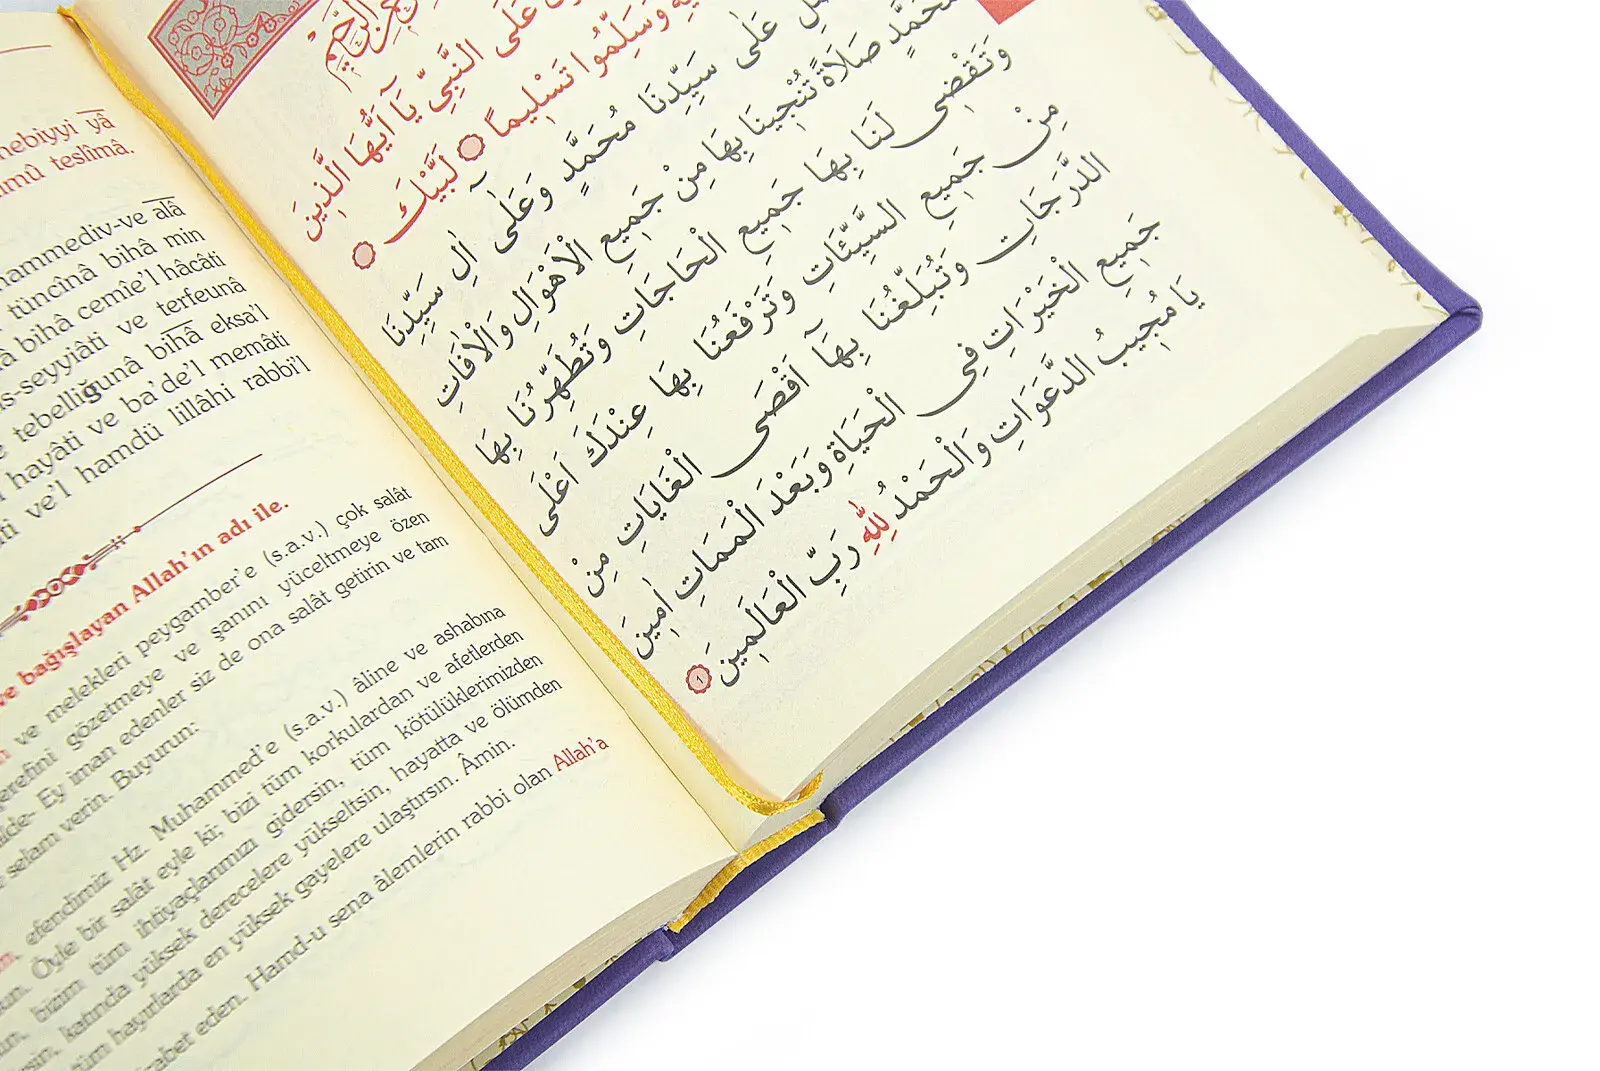 nebiyyi yâ
teslîmâ.
ve alâ
tüncînâ bihâ min
bihâ cemîe'l hâcâti
seyyiâti ve terfeunâ
tebelliğunâ bihâ eksa'l
hayâti ve ba'de'l memâti
ve'l hamdü lillâhi rabbi'l
ve bağışlayan Allah'ın adı ile.
ve melekleri peygamber'e (s.a.v.) çok salât
gözetmeye ve şanını yüceltmeye özen
Ey iman edenler siz de ona salât getirin ve tam
selam verin. Buyurun:
efendimiz Hz. Muhammed'e (s.a.v.) âline ve ashabına
Öyle bir salât eyle ki; bizi tüm korkulardan ve afetlerden
bizim tüm ihtiyaçlarımızı gidersin, tüm kötülüklerimizden
katında yüksek derecelere yükseltsin, hayatta ve ölümden
tüm hayırlarda en yüksek gayelere ulaştırsın. Âmin.
eden. Hamd-u sena âlemlerin rabbi olan Allah'a
عَلَى النَّبِيِّ يَآ اَيُّهَا الَّذِينَ
وَسَلِّمُوا تَسْلِيمًا لَبَّيْكَ
عَلٰى سَيِّدِنَا مُحَمَّدٍ وَعَلٰٓى اٰلِ سَيِّدِنَا
مُحَمَّدٍ صَلَاةً تُنْجِينَا بِهَا مِنْ جَمِيعِ الْاَهْوَالِ وَالْاٰفَاتِ
وَتَقْضِى لَنَا بِهَا جَمِيعَ الْحَاجَاتِ وَتُطَهِّرُنَا بِهَا
مِنْ جَمِيعِ السَّيِّئَاتِ وَتَرْفَعُنَا بِهَا عِنْدَكَ اَعْلَى
الدَّرَجَاتِ وَتُبَلِّغُنَا بِهَآ اَقْصَى الْغَايَاتِ مِنْ
جَمِيعِ الْخَيْرَاتِ فِى الْحَيَاةِ وَبَعْدَ الْمَمَاتِ اٰمِينَ
يَا مُجِيبُ الدَّعَوَاتِ وَالْحَمْدُ لِلّٰهِ رَبِّ الْعَالَمِينَ ١